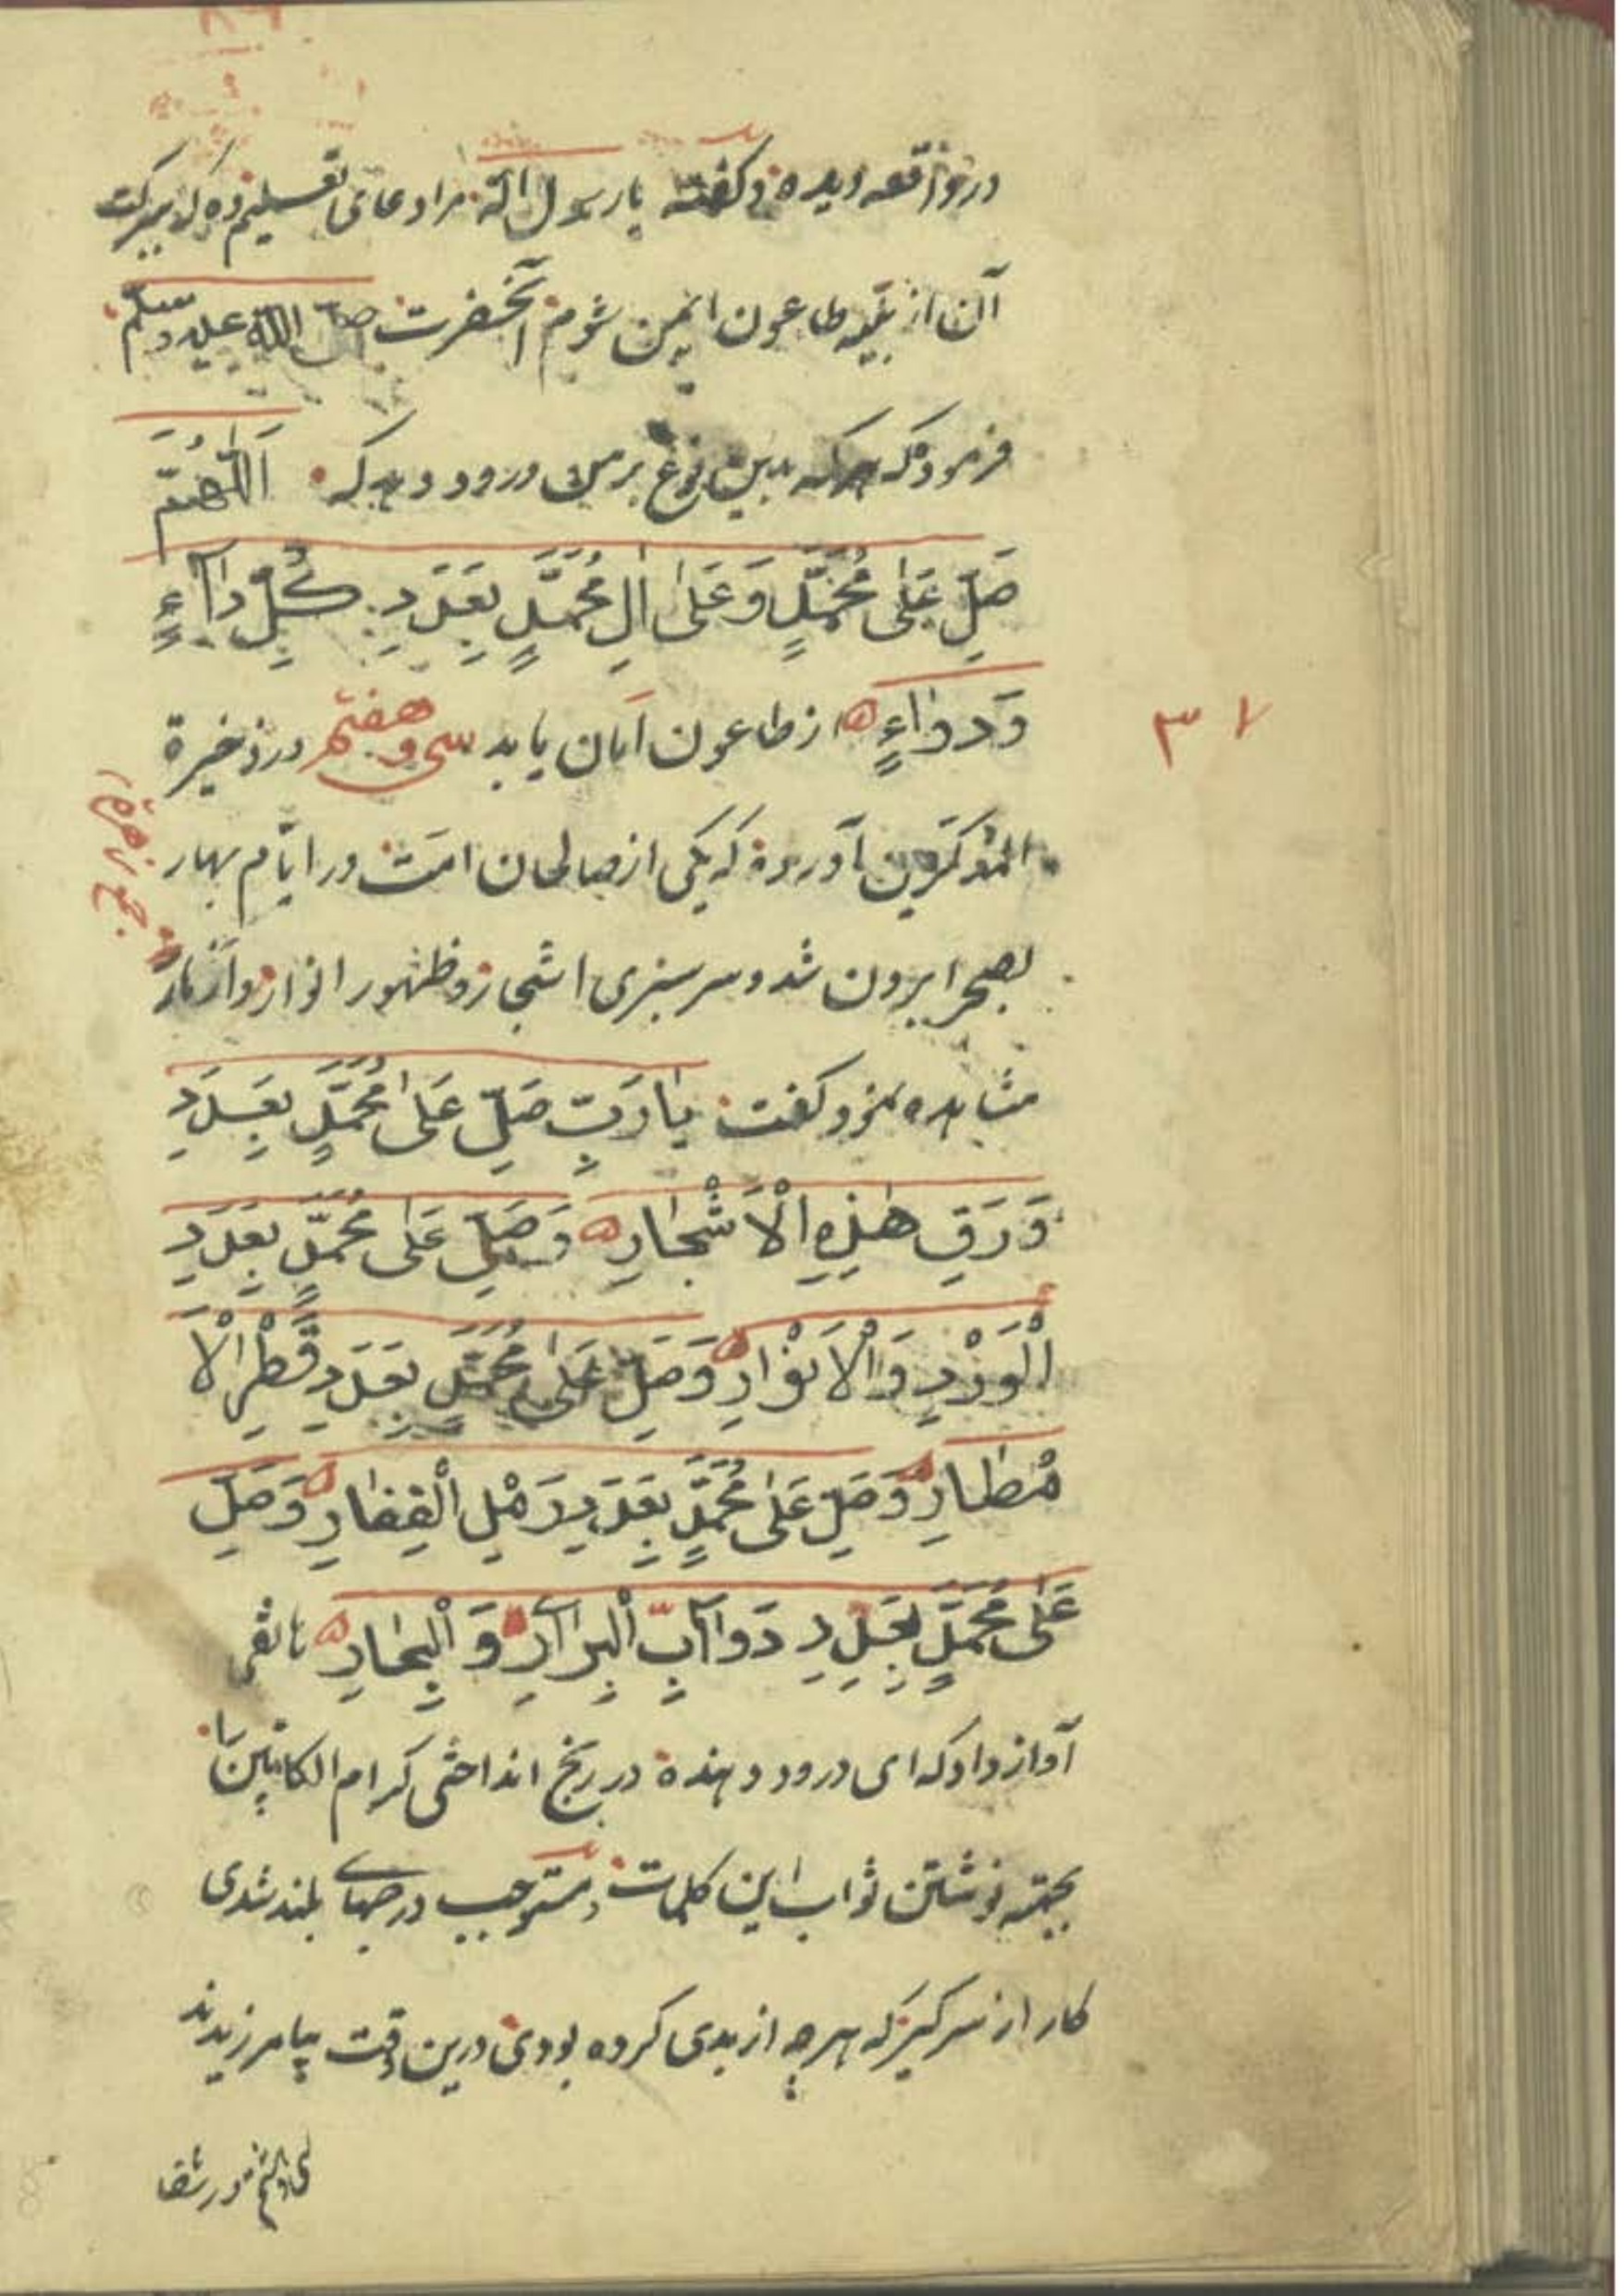 در واقعه دیده و گفته یا رسول الله مرا دعای تعلیم ده که ببرکت
آن از بلیه طاعون ایمن شوم آنحضرت صلی الله علیه وسلم
فرمود که هرکه بدین نوع بر من درود دهد که اَللّٰهُمَّ
صَلِّ عَلٰی مُحَمَّدٍ وَعَلٰی اٰلِ مُحَمَّدٍ بِعَدَدِ کُلِّ دَآءٍ
وَدَوٰاءٍ از طاعون امان یابد سی و هفتم در ذخیرة
۳۷
المذکرین آورده که یکی از صالحان امت در ایام بهار
بصحرا برون شد و سرسبزی اشجار و ظهور انوار و ازهار
جمع زهرة
مشاهده نمود گفت یٰا رَبِّ صَلِّ عَلٰی مُحَمَّدٍ بِعَدَدِ
وَرَقِ هٰذِهِ الْاَشْجٰارِ وَصَلِّ عَلٰی مُحَمَّدٍ بِعَدَدِ
الْوَرْدِ وَالْاَنْوٰارِ وَصَلِّ عَلٰی مُحَمَّدٍ بِعَدَدِ قَطْرِ الْاَ
مْطٰارِ وَصَلِّ عَلٰی مُحَمَّدٍ بِعَدَدِ رَمْلِ الْقِفٰارِ وَصَلِّ
عَلٰی مُحَمَّدٍ بِعَدَدِ دَوَآبِّ الْبِرَارِ وَ الْبِحٰارِ هاتفی
آواز داد که ای درود دهنده در رنج انداختی کرام الکاتبین را
بجهته نوشتن ثواب این کلمات و مستوجب درجهای بلند شدی
کار از سر گیر که هرچه از بدی کرده بودی درین وقت بیامرزیدند